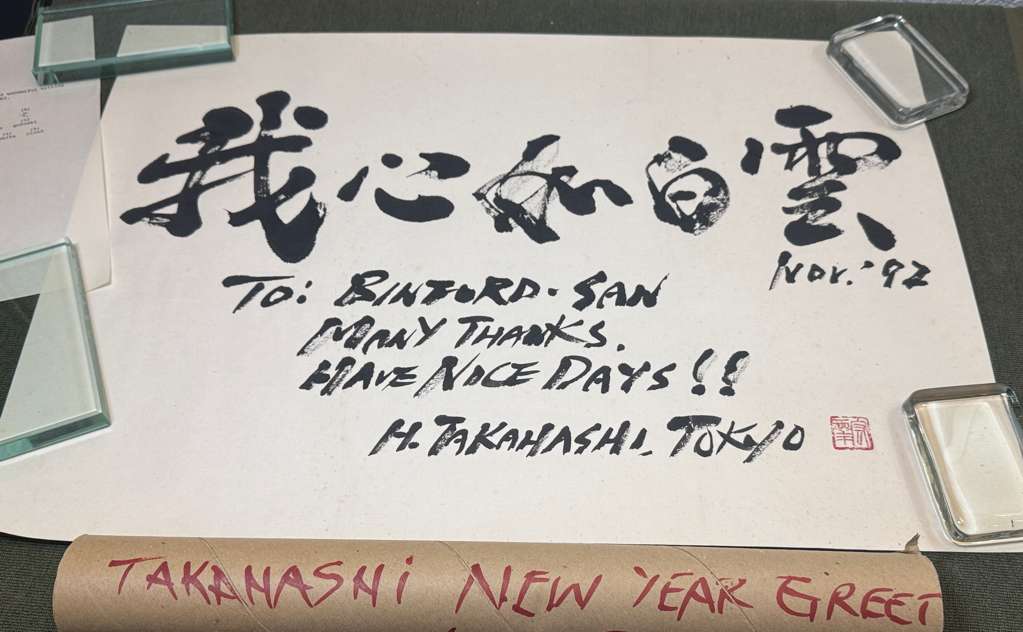 我心如白雲
Nov. '92
To: BINFORD-SAN
MANY THANKS.
HAVE NICE DAYS!!
H. TAKAHASHI. TOKYO
TAKAHASHi NEW YEAR GREET